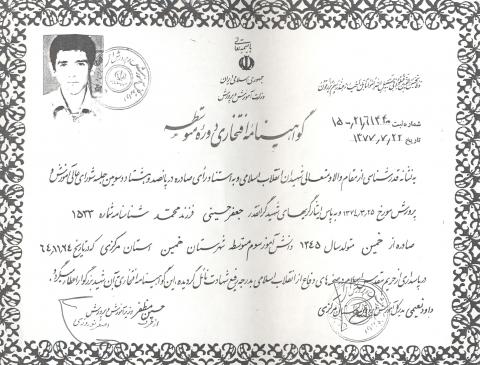 باسمه تعالی
جمهوری اسلامی ایران
وزارت آموزش و پرورش
شماره ثبت ۲۱۶۱۴۳۰-۱۵
تاریخ ۱۳۷۷,۷,۲۲
گواهینامه افتخاری دوره متوسطه
به نشانه قدرشناسی از مقام والا و متعالی شهیدان انقلاب اسلامی و به استناد رأی صادره در پانصد و هشتاد و سومین جلسه شورای عالی آموزش و
پرورش مورخ ۱۳۷۶,۳,۲۵ و به پاس ایثارگریهای شهید گرانقدر جعفر حسینی فرزند محمد شناسنامه شماره ۱۵۳۳
صادره از خمین متولد سال ۱۳۴۵ دانش آموز سوم متوسطه شهرستان خمین استان مرکزی که در تاریخ ۶۴,۱۱,۲۴
در پاسداری از حریم مقدس اسلام و جبهه های دفاع از انقلاب اسلامی به درجه رفیع شهادت نائل گردیده، این گواهینامه افتخاری به آن شهید بزرگوار اعطا میگردد.
حسین مظفر
وزیر آموزش و پرورش
از طرف
داود نعیمی مدیرکل آموزش و پرورش استان مرکزی